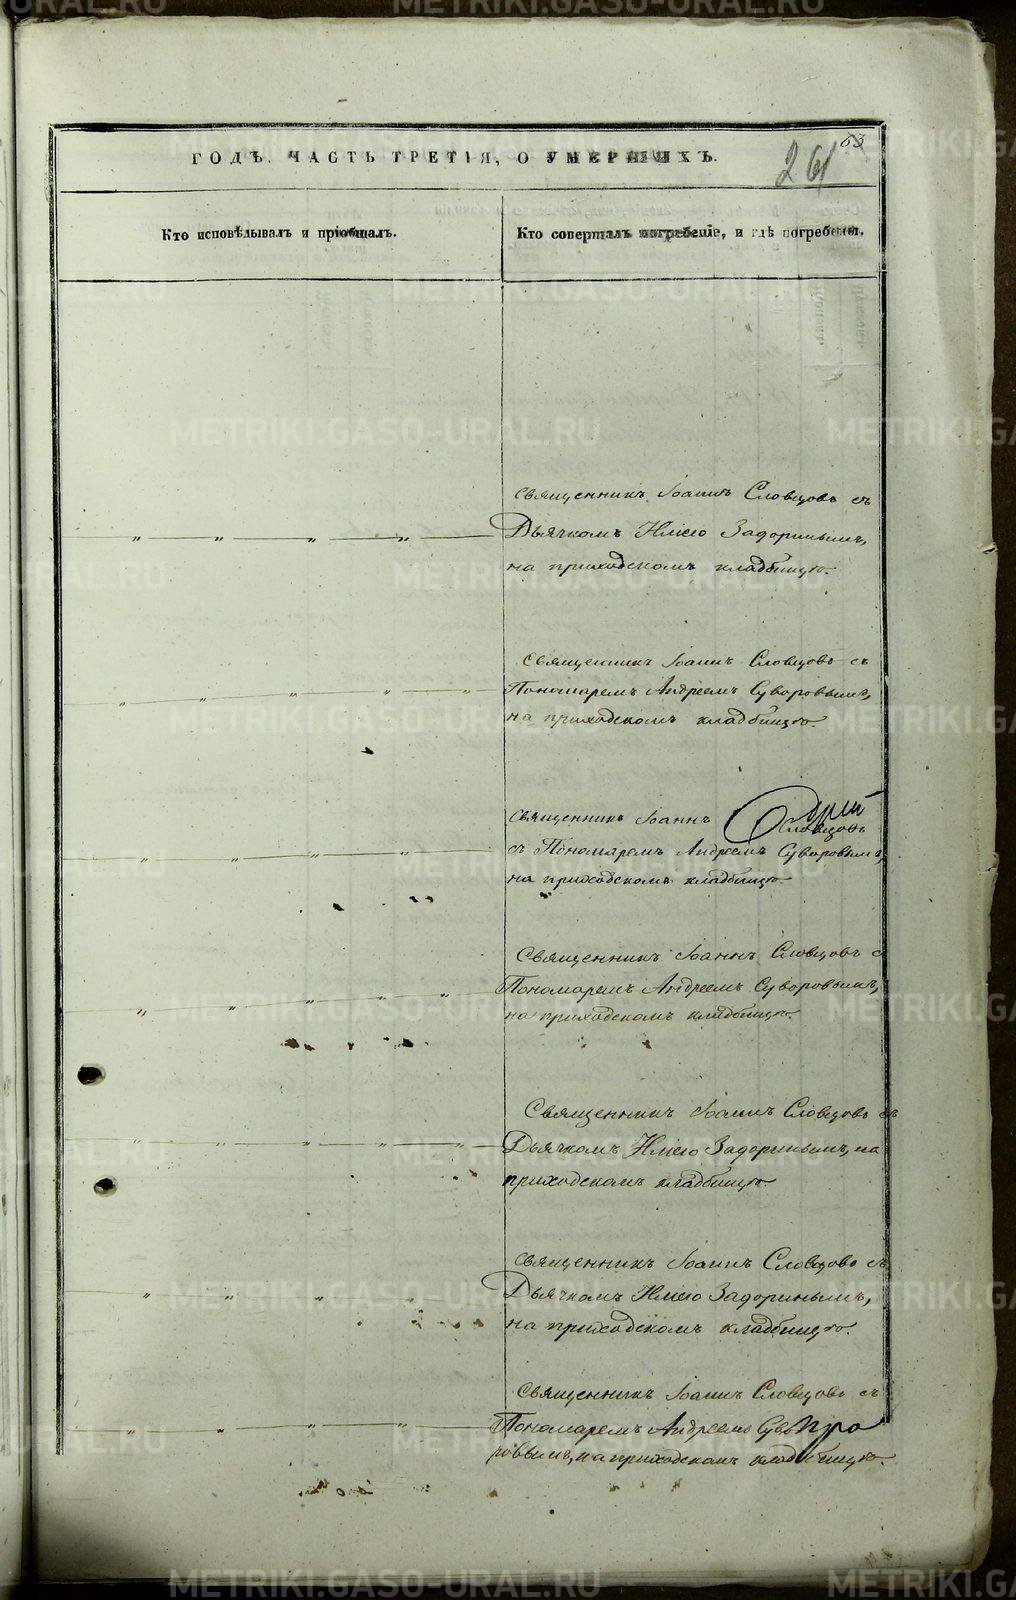 63
261
ГОДЪ. ЧАСТЬ ТРЕТІЯ, О УМЕРШИХЪ.
Кто исповѣдывалъ и пріобщалъ.
Кто совершалъ погребеніе, и гдѣ погребены.
Священникъ Іоаннъ Словцовъ съ
Дьячкомъ Иліею Задоринымъ,
на приходскомъ кладбищѣ.
Священникъ Іоаннъ Словцовъ съ
Пономаремъ Андреемъ Суворовымъ,
на приходскомъ кладбищѣ.
Священникъ Іоаннъ Словцовъ
съ Пономаремъ Андреемъ Суворовымъ,
на приходскомъ кладбищѣ.
Священникъ Іоаннъ Словцовъ с
Пономаремъ Андреемъ Суворовымъ,
на приходскомъ кладбищѣ.
Священникъ Іоаннъ Словцовъ съ
Дьячкомъ Иліею Задоринымъ, на
приходскомъ кладбищѣ.
Священникъ Іоаннъ Словцовъ съ
Дьячкомъ Иліею Задоринымъ,
на приходскомъ кладбищѣ.
Священникъ Іоаннъ Словцовъ съ
Пономаремъ Андреемъ Суво
ровымъ, на приходскомъ кладбищѣ.
METRIKI.GASO-URAL.RU